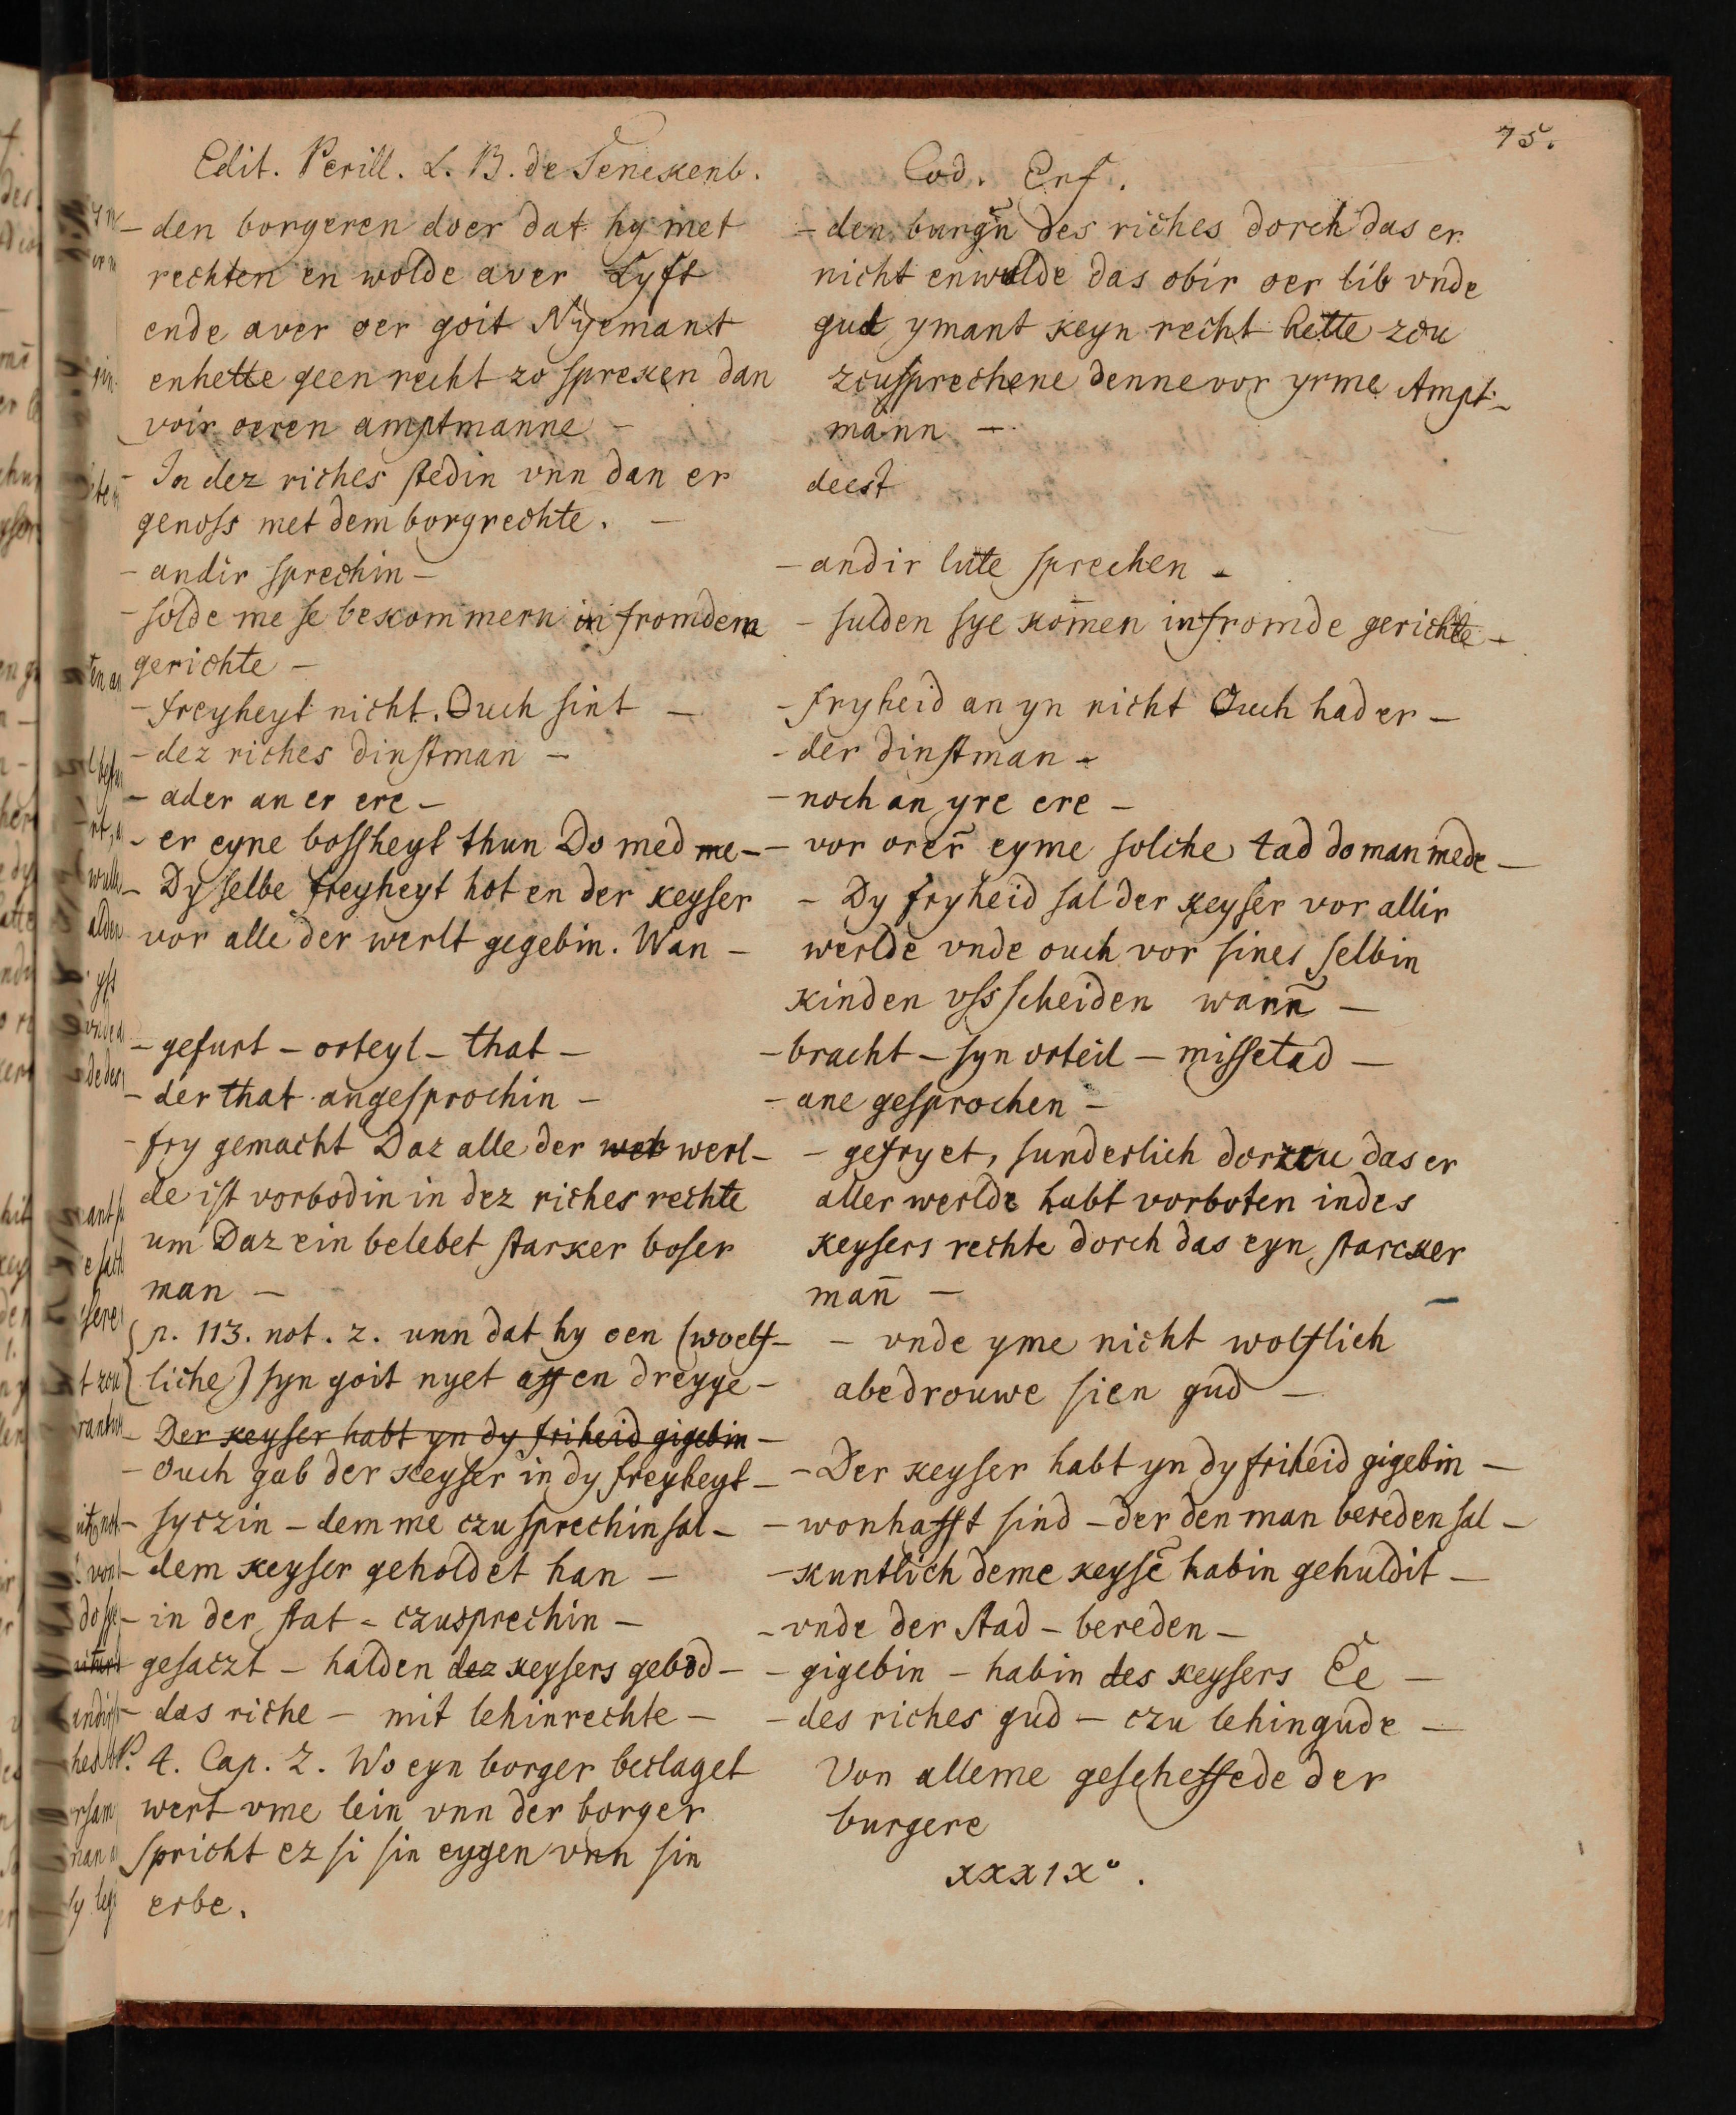 75.
Edit. Perill. L. B. de Senckenb.
- den borgeren doer dat hy met
rechten en wolde aver Lyft
ende aver oer goit Nyemant
enhette geen recht zo spreken dan
voir oeren amptmanne -
- In dez riches stedin vnn dan er
genoss met dem borgrechte. -
- andir sprechin -
- solde me se bekommern in fromdem
gerichte -
- freyheyt nicht. Ouch sint -
- dez riches dinstman -
- ader an er ere -
- er eyne bossheyt thun Do med me -
- Dy selbe freyheyt hot en der keyser
vor alle der werlt gegebin. Wan -
- gefurt - orteyl - that -
- der that angesprochin -
- fry gemacht Daz alle der wer werl-
de ist vorbodin in dez riches rechte
um Daz ein belebet starker boser
man -
p. 113. not. z. unn dat hy oen (woelf-
liche) syn goit nyet affen dreyge -
- Der keyser habt yn dy friheid gigebin -
- Ouch gab der keyser in dy freyheyt -
- syczin - dem me czu sprechin sal -
- dem keyser geholdet han -
- in der stat - czusprechin -
gesaczt - halden dez keysers gebod -
- das riche - mit lehinrechte -
P. 4. Cap. 2. Wo eyn borger beclaget
wert vme lein vnn der borger
spricht ez si sin eygen vnn sin
erbe.
Cod. Erf.
- den burgn̄ des riches dorch das er
nicht enwolde das obir oer lib vnde
gud ymant keyn recht hette zcu
zcusprechene denne vor yrme Ampt-
mann -
deest
- andir lute sprechen -
- sulden sye kom̄en in fromde gerichte -
- fryheid an yn nicht Ouch had er -
- der dinstman -
- noch an yre ere -
- vor orer̄ eyme solche tad do man mede -
- Dy fryheid sal der keyser vor allir
werlde vnde ouch vor sines selbin
kinden vss scheiden wann̄ -
- bracht - syn orteil - missetad -
- ane gesprochen -
- gefryet, sunderlich dorzcu das er
aller werlde habt vorboten in des
keysers rechte dorch das eyn starcker
man̄ -
- vnde yme nicht wolflich
abedrouwe sien gud -
- Der keyser habt yn dy friheid gigebin -
- wonhafft sind - der den man bereden sal -
- kuntlich deme keysē habin gehuldit -
- vnde der stad - bereden -
- gigebin - habin des keysers Ee -
- des riches gud - czu lehingude -
Von alleme gescheffede der
burgere
xxxıx°.